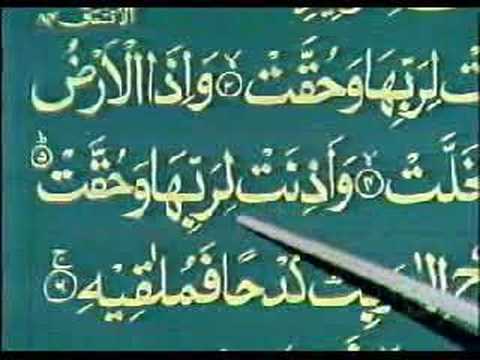 الانشقاق ٨٤
تْ لِرَبِّهَا وَحُقَّتْ ۲ وَاِذَا الْاَرْضُ
خَلَّتْ ۴ وَاَذِنَتْ لِرَبِّهَا وَحُقَّتْ ۵
كَدْحًا فَمُلٰقِيْهِ ۶